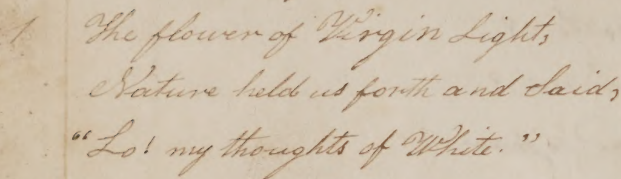 The flower of Virgin Light,
Nature held us forth and Said,
"Lo! my thoughts of White."